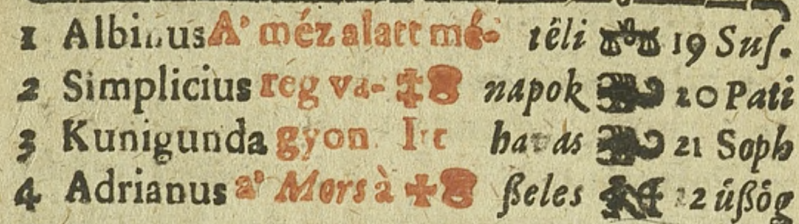 1 Albinus A' méz alatt mé- téli 19 Sus.
2 Simplicius reg va- napok 20 Pati
3 Kunigunda gyon havas 21 Soph
4 Adrianus a' Mors à ßeles 22 üßög